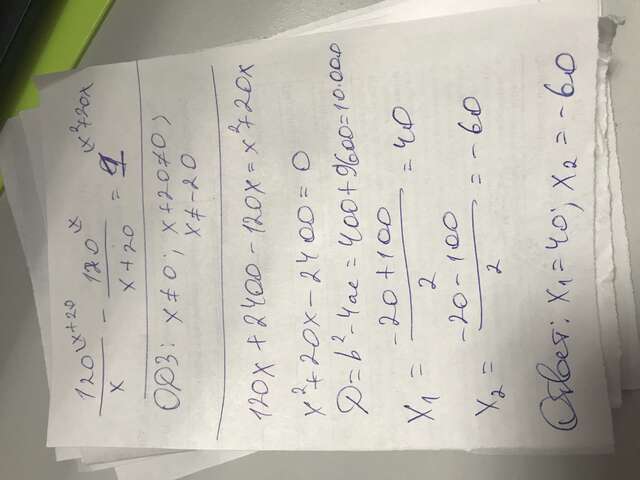 120^(x+20 / x - 120^(x / x+20 = 1^(x²+20x
ОДЗ: x≠0; x+20≠0;
x≠-20
120x+2400-120x=x²+20x
x²+20x-2400=0
D=b²-4ac=400+9600=10.000
x₁ = -20+100 / 2 = 40
x₂ = -20-100 / 2 = -60
Ответ: x₁=40; x₂=-60